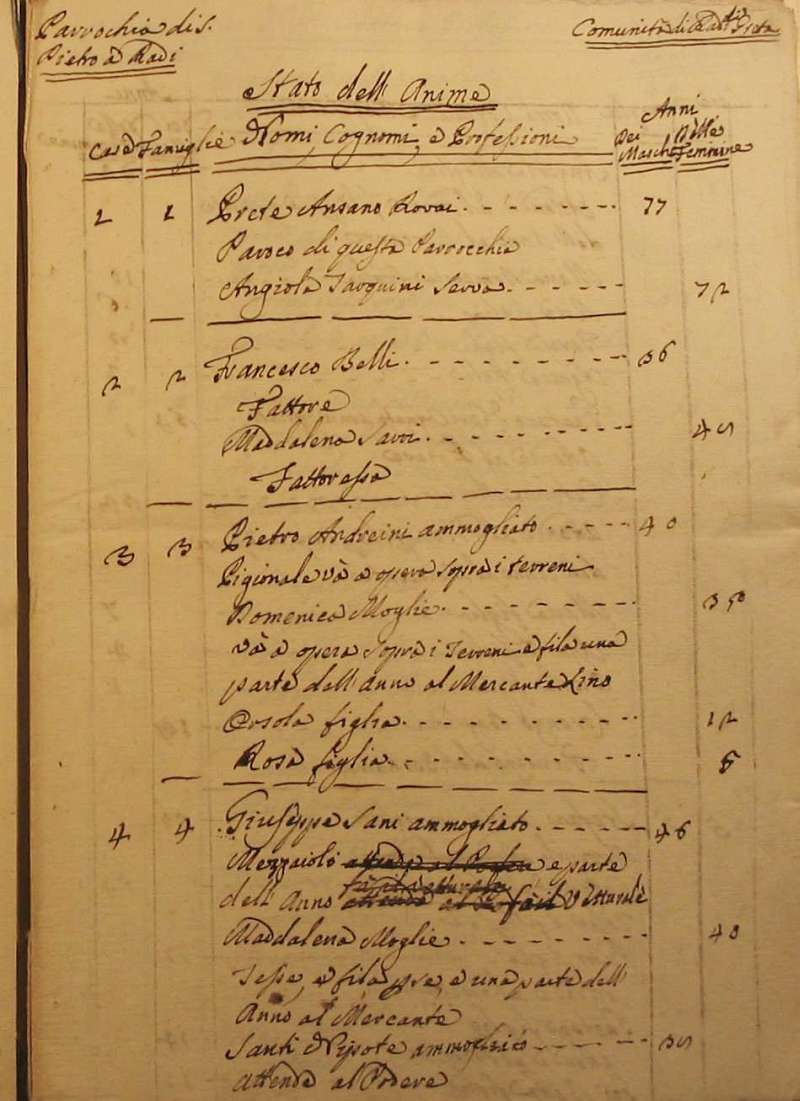 Parrochia di S.
Pietro a Radi
Comunità di
Stato dell'Anime
Case Famiglie Nomi, Cognomi, e Professioni Anni Dei Maschi Delle Femmine
1 1 Prete Ansano Rovai 77
Paroco di questa Parrocchia
Angiola Tarquini Serva 72
2 2 Francesco Belli 36
Fattore
Maddalena Savoi 45
Fattoressa
3 3 Pietro Andreini ammogliato 40
Pigionale và a opera sopra i terreni
Domenica Moglie 30
và a opera sopra i Terreni e fila una
parte dell'anno al Mercante Lino
Orsola figlia 12
Rosa figlia 5
4 4 Giuseppe Sani ammogliato 46
Mezzaiolo e parte
dell'Anno fà il Vetturale
Maddalena Moglie 40
Tesse, e fila e una parte dell'
Anno al Mercante
Santi Nipote ammogliato 35
attende al Podere